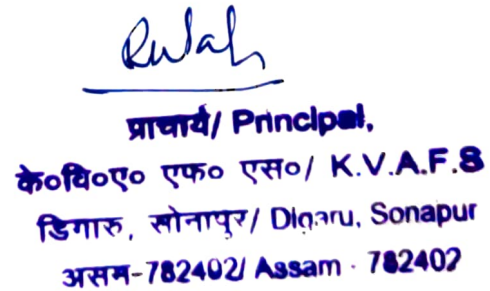 प्राचार्य/ Principal,
के०वि०ए० एफ० एस०/ K.V.A.F.S
डिगारु, सोनापुर/ Digaru, Sonapur
असम-782402/ Assam - 782402